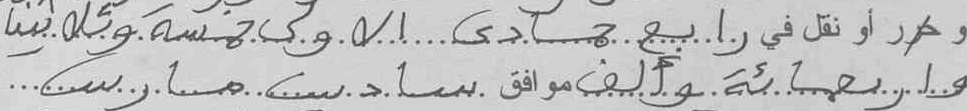 و حرر أو نقل في رابع جمادى الاولى خمسة وثلاثين
واربعمائة وألف موافق سادس مارس